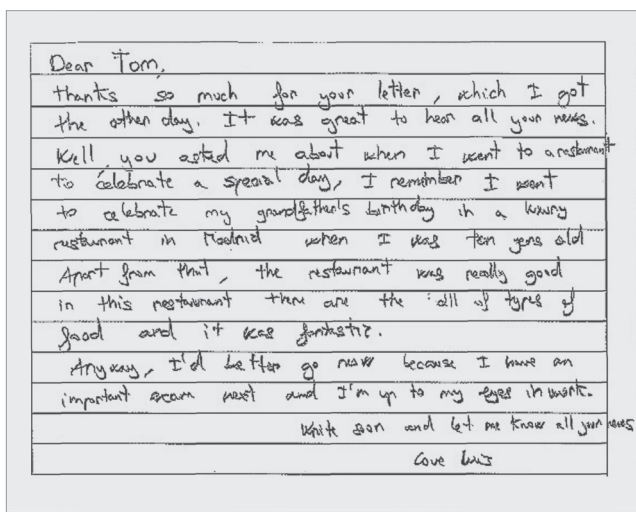 Dear Tom,
thanks so much for your letter, which I got
the other day. It was great to hear all your news.
Well, you asked me about when I went to a restaurant
to celebrate a special day, I remember I went
to celebrate my grandfather's birthday in a luxury
restaurant in Madrid when I was ten yens old
Apart from that, the restaurant was really good
in this restaurant there are the all of types of
food and it was fantastic.
Anyway, I'd better go now because I have an
important exam next and I'm up to my eyes in work.
Write soon and let me know all your news
Love Luis